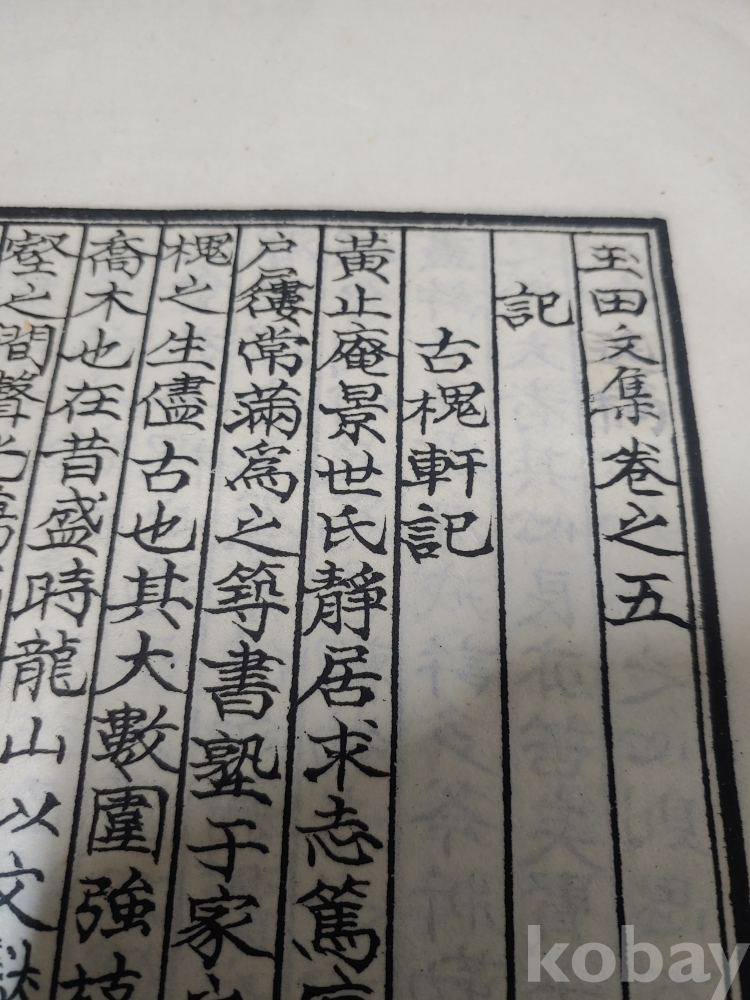 玉田文集卷之五
記
古槐軒記
黃止庵景世氏靜居求志篤
户屨常滿爲之築書塾于家
槐之生儘古也其大數圍強枝
喬木也在昔盛時龍山以文
壑之間聲光
kobay